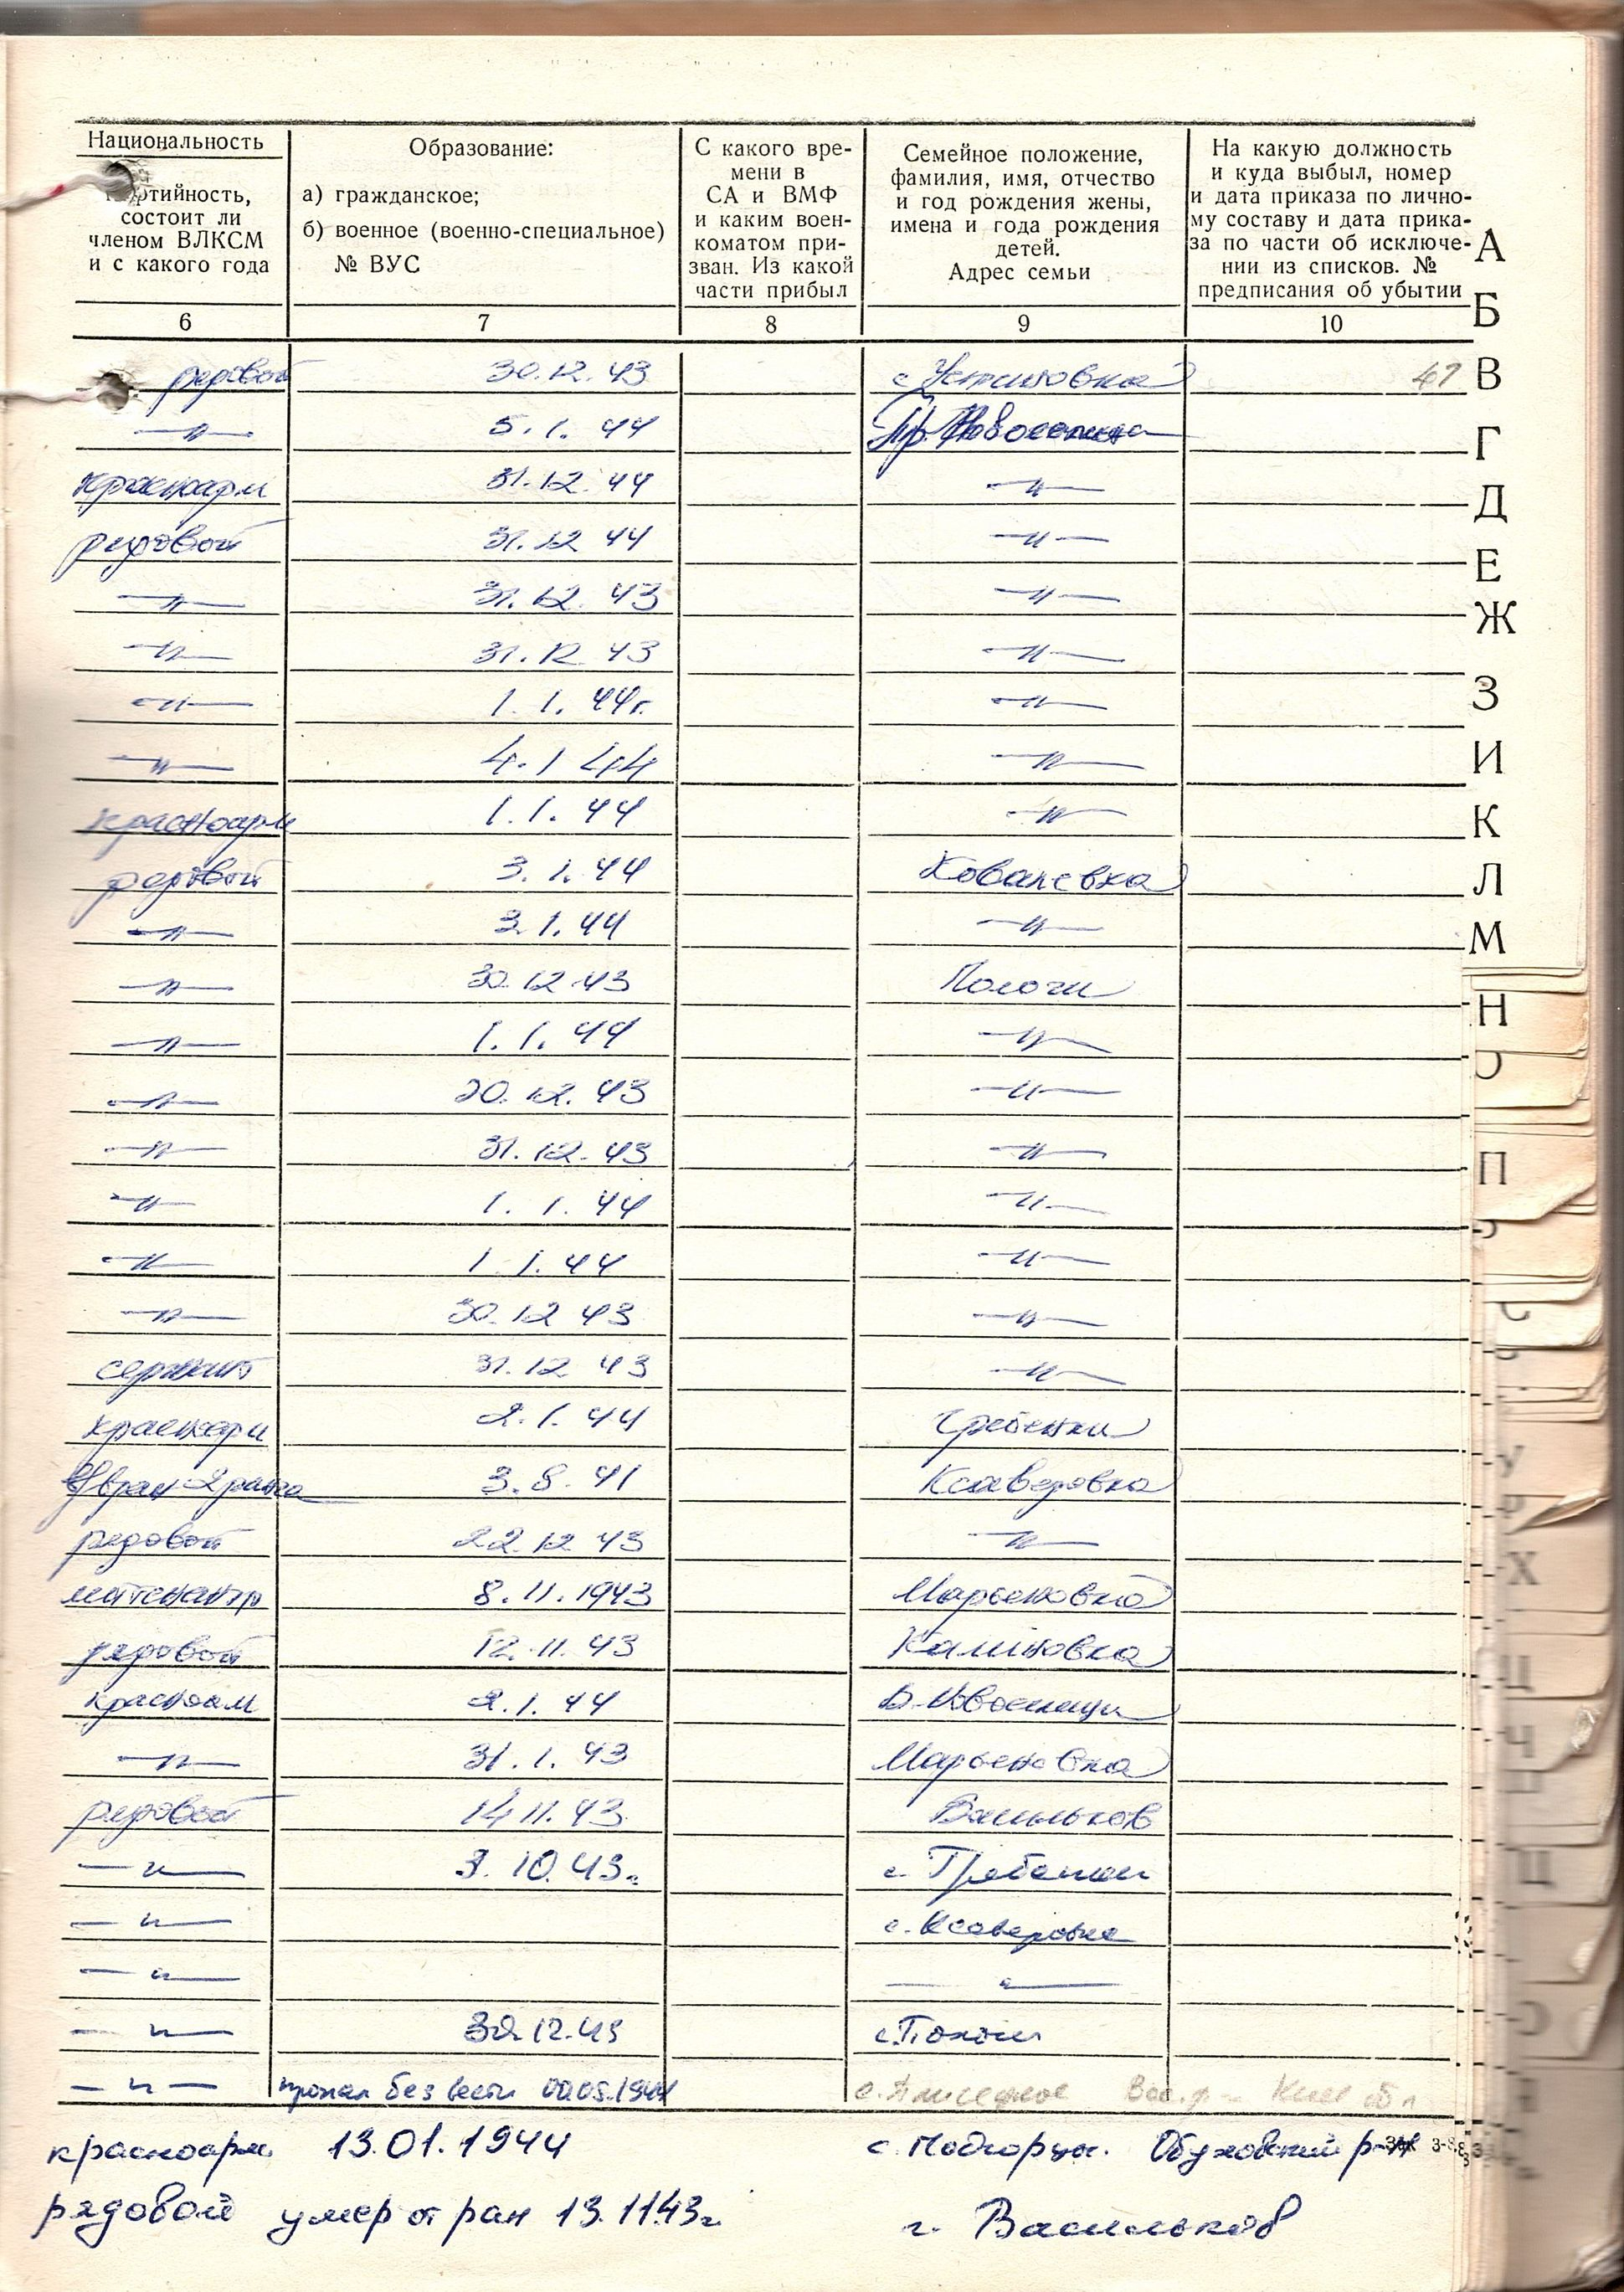 Национальность
партийность,
состоит ли
членом ВЛКСМ
и с какого года
Образование:
а) гражданское;
б) военное (военно-специальное)
№ ВУС
С какого вре-
мени в
СА и ВМФ
и каким воен-
коматом при-
зван. Из какой
части прибыл
Семейное положение,
фамилия, имя, отчество
и год рождения жены,
имена и года рождения
детей.
Адрес семьи
На какую должность
и куда выбыл, номер
и дата приказа по лично-
му составу и дата прика-
за по части об исключе-
нии из списков. №
предписания об убытии
6 7 8 9 10
рядовой 30.12.43 с Устиновка 47
—"— 5.1.44
красноарм 31.12.44 —"—
рядовой 31.12 44 —"—
—"— 31.12.43 —"—
—"— 31.12 43 —"—
—"— 1.1.44г. —"—
—"— 4.1 44 —"—
красноарм 1.1.44 —"—
рядовой 3.1.44 Ковалевка
—"— 3.1.44 —"—
—"— 30.12.43 Пологи
—"— 1.1.44 —"—
—"— 30.12.43 —"—
—"— 31.12.43 —"—
—"— 1.1.44 —"—
—"— 1 1.44 —"—
—"— 30.12 43 —"—
сержант 31.12 43 —"—
красноарм 2.1.44 Гребенки
2 ранга 3.8.41 Ксаверовка
рядовой 22.12 43 —"—
лейтенант 8.11.1943 Марьяновка
рядовой 12.11.43 Калиновка
красноам 2.1.44
—"— 31.1.43 Марьяновка
рядовой 14 11.43 Васильков
—"— 3.10.43г. с. Гребенки
—"— с. Ксаверовка
—"— —"—
—"— 30.12.43 с. Пологи
—"— пропал без вести 00.05.1944 с. Вас. р-н Киев обл
красноарм 13.01.1944 с. Подгорцы. Обуховский р-н
рядовой умер от ран 13.11.43г. г. Васильков
А
Б
В
Г
Д
Е
Ж
З
И
К
Л
М
Н
О
П
У
Х
Ц
Ч